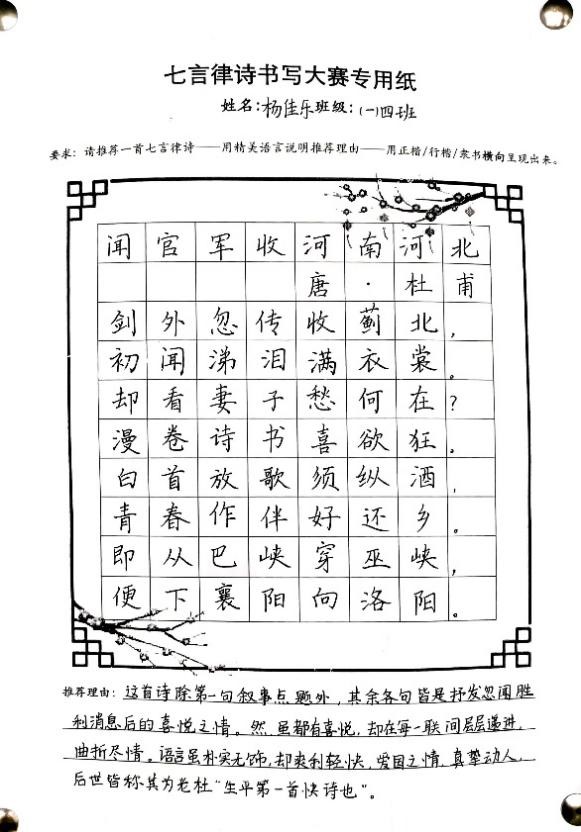 七言律诗书写大赛专用纸
姓名:杨佳乐班级:(一)四班
要求：请推荐一首七言律诗——用精美语言说明推荐理由——用正楷/行楷/隶书横向呈现出来。
闻官军收河南河北
唐·杜甫
剑外忽传收蓟北,
初闻涕泪满衣裳。
却看妻子愁何在?
漫卷诗书喜欲狂。
白首放歌须纵酒,
青春作伴好还乡。
即从巴峡穿巫峡,
便下襄阳向洛阳。
推荐理由：这首诗除第一句叙事点题外，其余各句皆是抒发忽闻胜
利消息后的喜悦之情。然虽都有喜悦,却在每一联间层层递进,
曲折尽情。语言虽朴实无饰,却爽利轻快,爱国之情,真挚动人,
后世皆称其为老杜“生平第一首快诗也”。